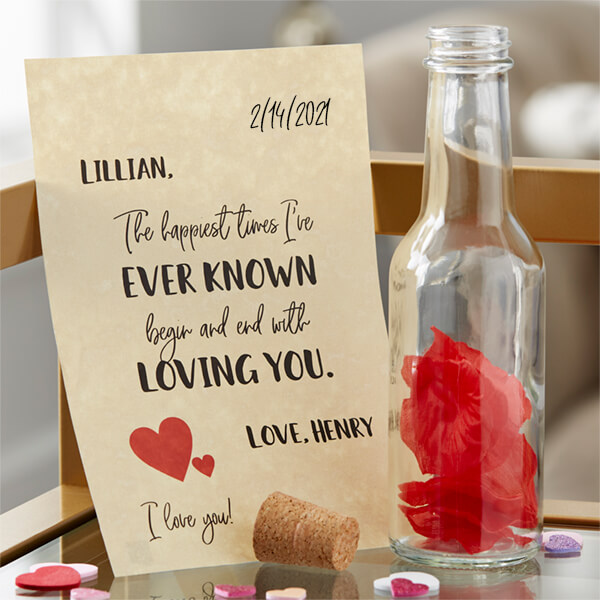 2/14/2021
LILLIAN,
The happiest times I've
EVER KNOWN
begin and end with
LOVING YOU.
LOVE, HENRY
I love you!